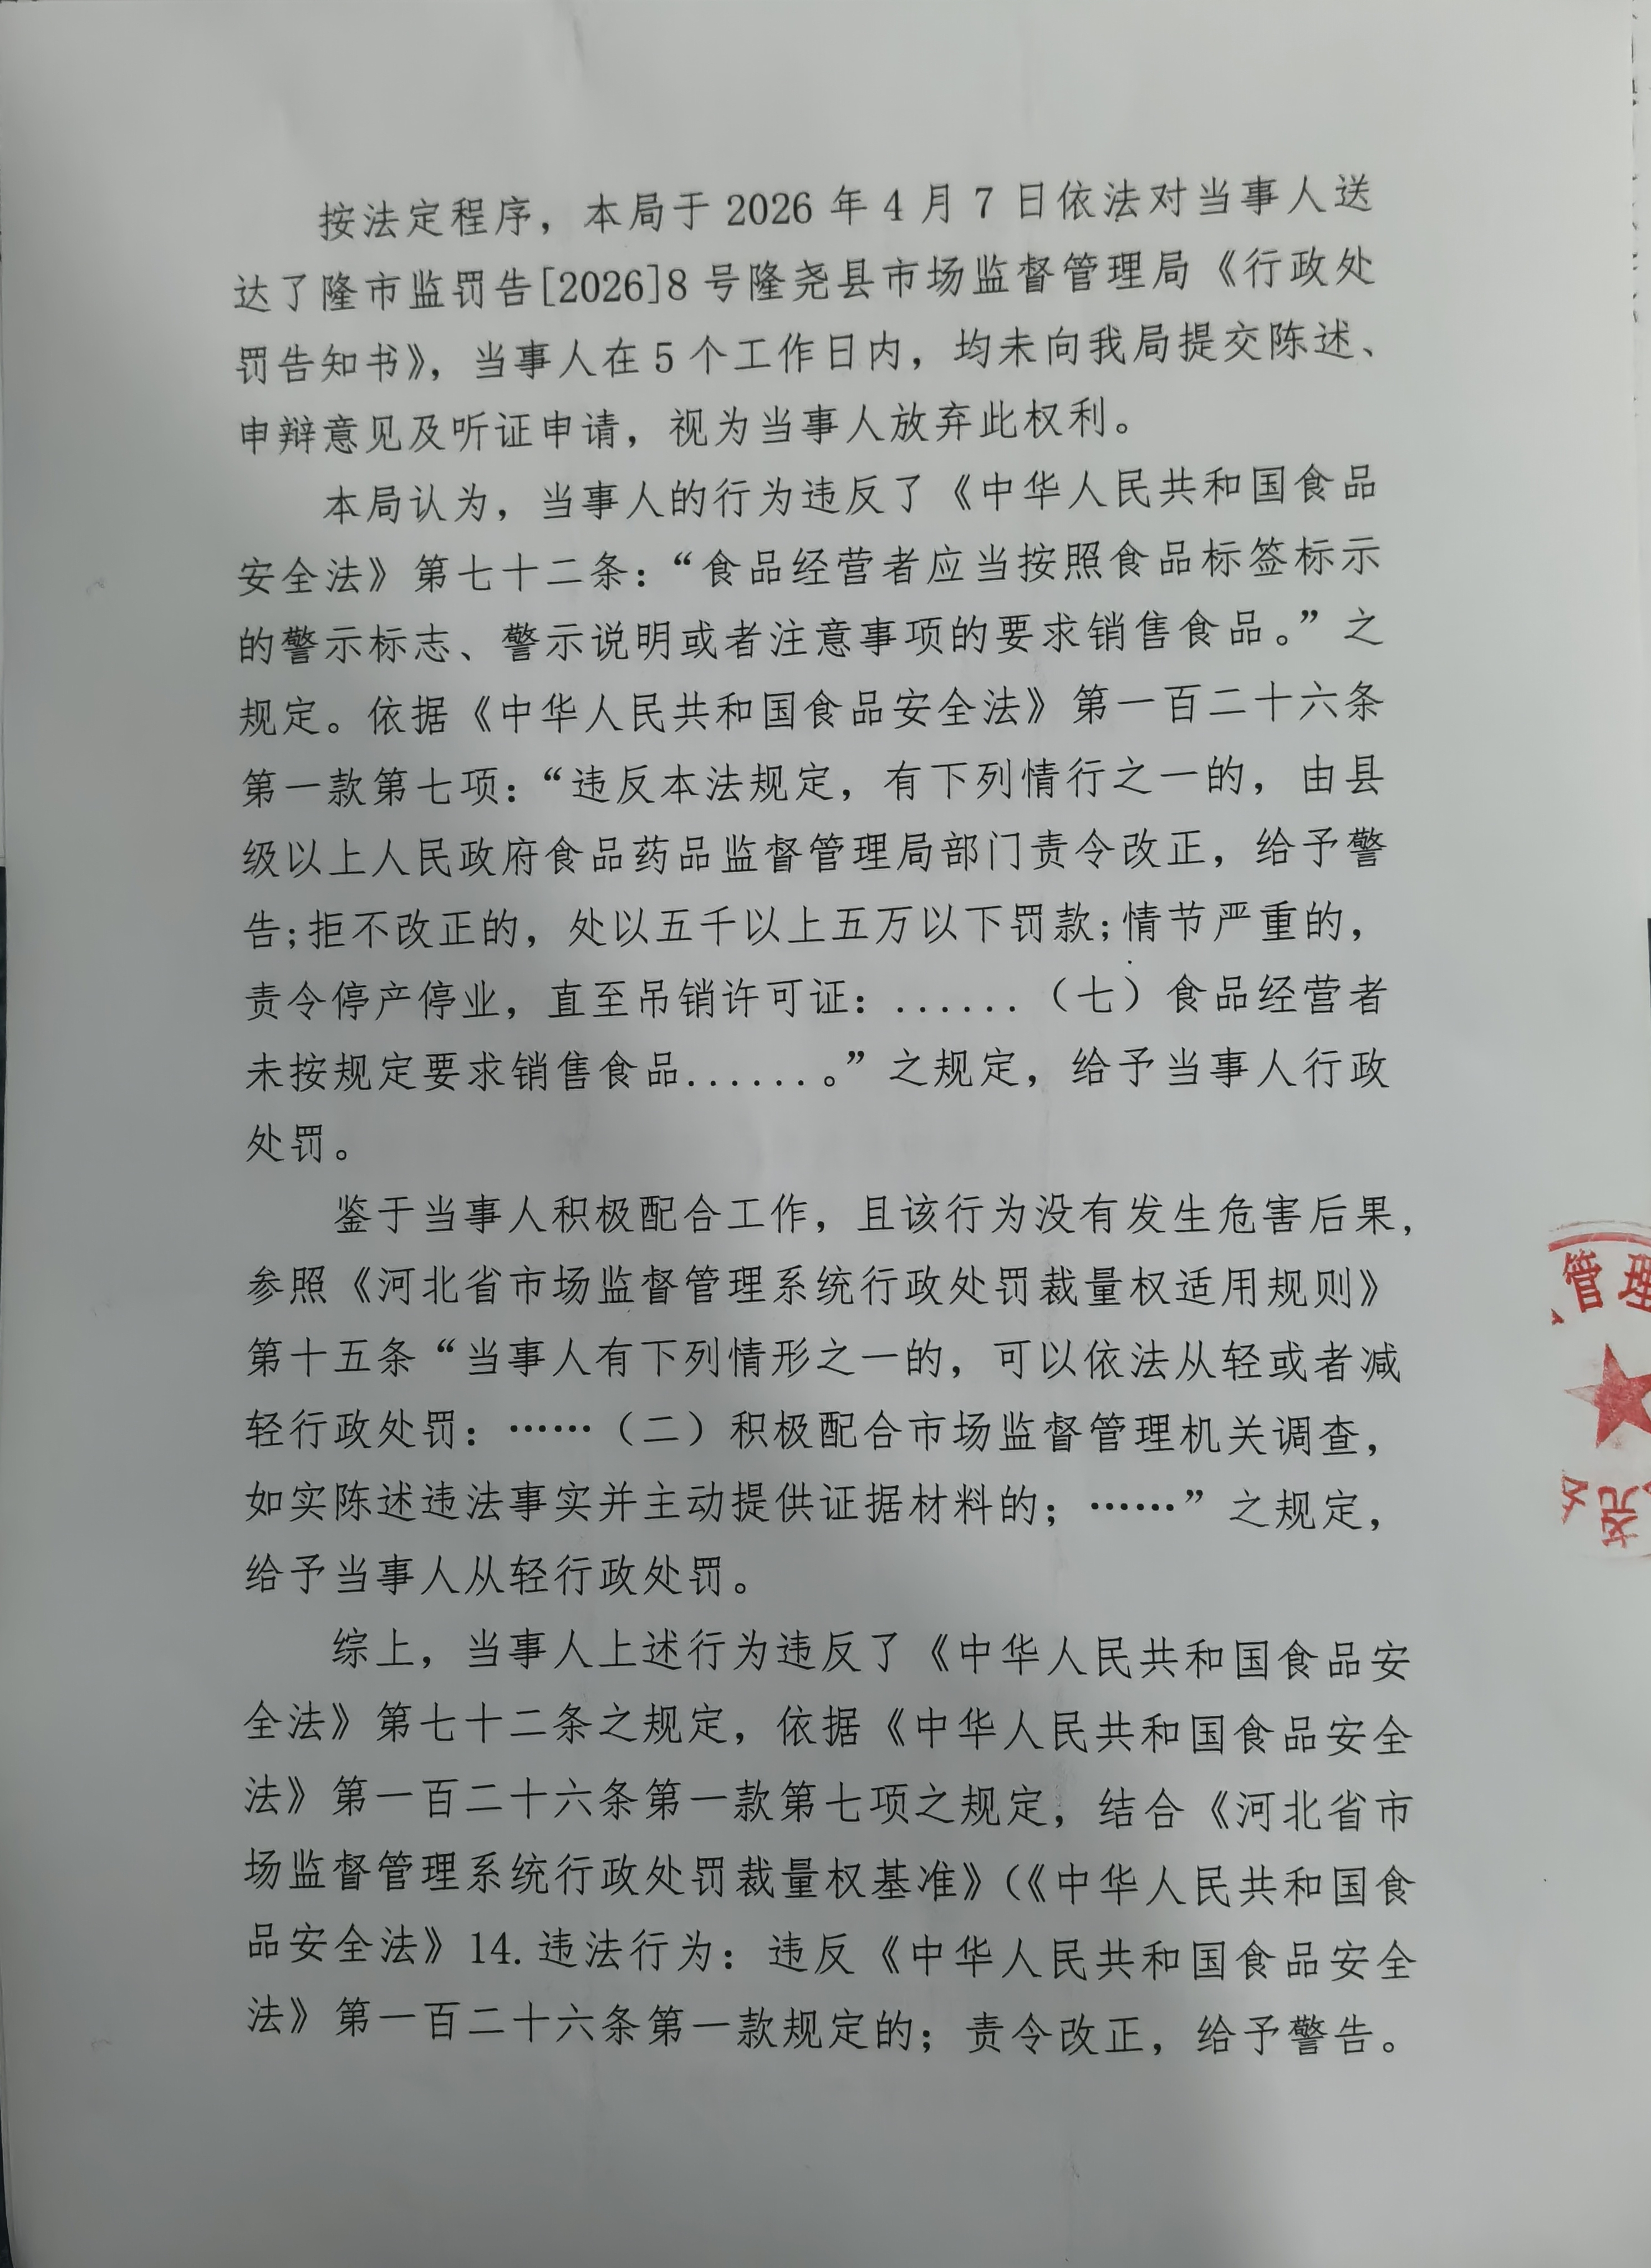 按法定程序，本局于 2026 年 4 月 7 日依法对当事人送
达了隆市监罚告[2026]8 号隆尧县市场监督管理局《行政处
罚告知书》，当事人在 5 个工作日内，均未向我局提交陈述、
申辩意见及听证申请，视为当事人放弃此权利。
本局认为，当事人的行为违反了《中华人民共和国食品
安全法》第七十二条：“食品经营者应当按照食品标签标示
的警示标志、警示说明或者注意事项的要求销售食品。”之
规定。依据《中华人民共和国食品安全法》第一百二十六条
第一款第七项：“违反本法规定，有下列情行之一的，由县
级以上人民政府食品药品监督管理局部门责令改正，给予警
告;拒不改正的，处以五千以上五万以下罚款;情节严重的，
责令停产停业，直至吊销许可证：......（七）食品经营者
未按规定要求销售食品.......。”之规定，给予当事人行政
处罚。
鉴于当事人积极配合工作，且该行为没有发生危害后果，
参照《河北省市场监督管理系统行政处罚裁量权适用规则》
第十五条“当事人有下列情形之一的，可以依法从轻或者减
轻行政处罚：……（二）积极配合市场监督管理机关调查，
如实陈述违法事实并主动提供证据材料的；……”之规定，
给予当事人从轻行政处罚。
综上，当事人上述行为违反了《中华人民共和国食品安
全法》第七十二条之规定，依据《中华人民共和国食品安全
法》第一百二十六条第一款第七项之规定，结合《河北省市
场监督管理系统行政处罚裁量权基准》（《中华人民共和国食
品安全法》14.违法行为：违反《中华人民共和国食品安全
法》第一百二十六条第一款规定的；责令改正，给予警告。
管理
尧